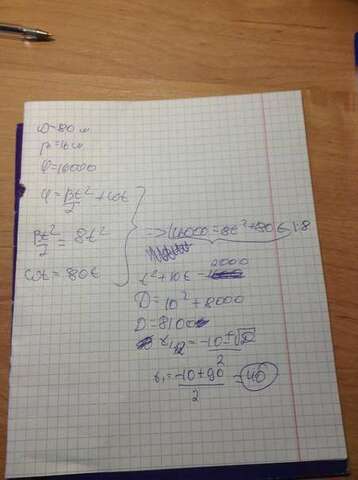 ω=80
β=16
φ=16000
φ=βt²/2+ωt
βt²/2=8t²
ωt=80t
=>16000=8t²+80t |:8
t²+10t-2000
D=10²+8000
D=8100
t₁,₂=-10±√D/2
t₁=-10+90/2=40